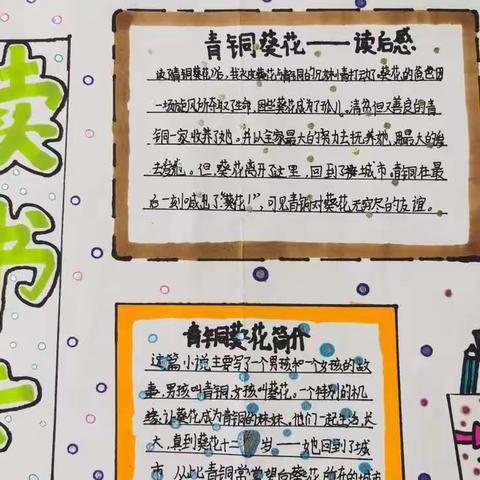 读书卡
青铜葵花——读后感
读了《青铜葵花》后,我被葵花与青铜的兄妹情打动了。葵花的爸爸因
一场旋风所夺取了生命,因些葵花成为了孤儿。清贫但又善良的青
铜一家收养了她。并从全家最大的努力去抚养她,用最大的
去。但葵花离开了这里,回到了城市。青铜在最
后一刻喊出了“葵花!”,可见青铜对葵花无穷尽的友谊。
青铜葵花简介
这篇小说主要写了一个男孩和一个女孩的故
事,男孩叫青铜,女孩叫葵花,一个特别的机
缘,让葵花成为青铜的妹妹,他们一起生活,长
大,直到葵花十二岁——她回到了城
市,从此青铜常常望向葵花所在的城市